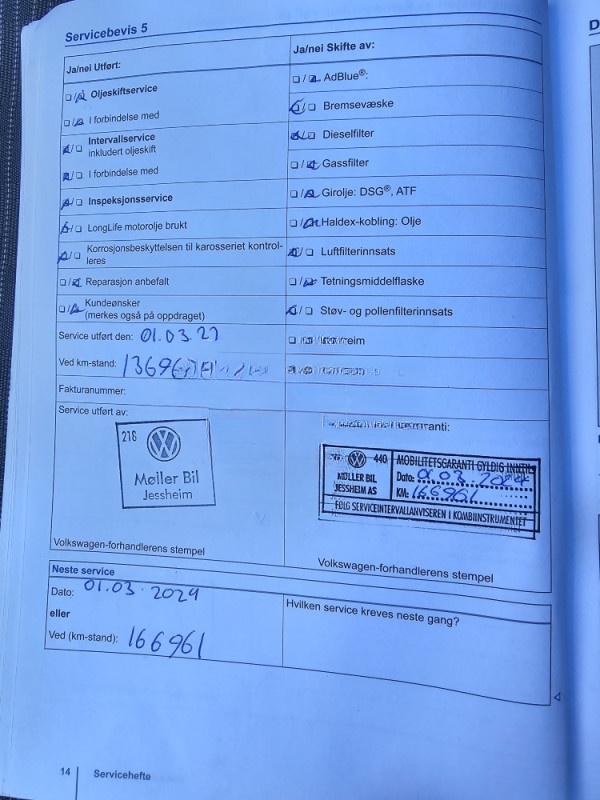 Servicebevis 5
Ja/nei Utført:
Oljeskiftservice
I forbindelse med
Intervallservice
inkludert oljeskift
I forbindelse med
Inspeksjonsservice
LongLife motorolje brukt
Korrosjonsbeskyttelsen til karosseriet kontrol-
leres
Reparasjon anbefalt
Kundeønsker
(merkes også på oppdraget)
Service utført den: 01.03.23
Ved km-stand:
Fakturanummer:
Service utført av:
216
Møller Bil
Jessheim
Volkswagen-forhandlerens stempel
Ja/nei Skifte av:
AdBlue®:
Bremsevæske
Dieselfilter
Gassfilter
Girolje: DSG®, ATF
Haldex-kobling: Olje
Luftfilterinnsats
Tetningsmiddelflaske
Støv- og pollenfilterinnsats
440
MØLLER BIL
JESSHEIM AS
MOBILITETSGARANTI GYLDIG INNTIL
Dato: 01.03.2024
KM: 166961
FØLG SERVICEINTERVALLANVISEREN I KOMBIINSTRUMENTET
Volkswagen-forhandlerens stempel
Neste service
Dato: 01.03.2024
eller
Ved (km-stand): 166961
Hvilken service kreves neste gang?
14 Servicehefte
D